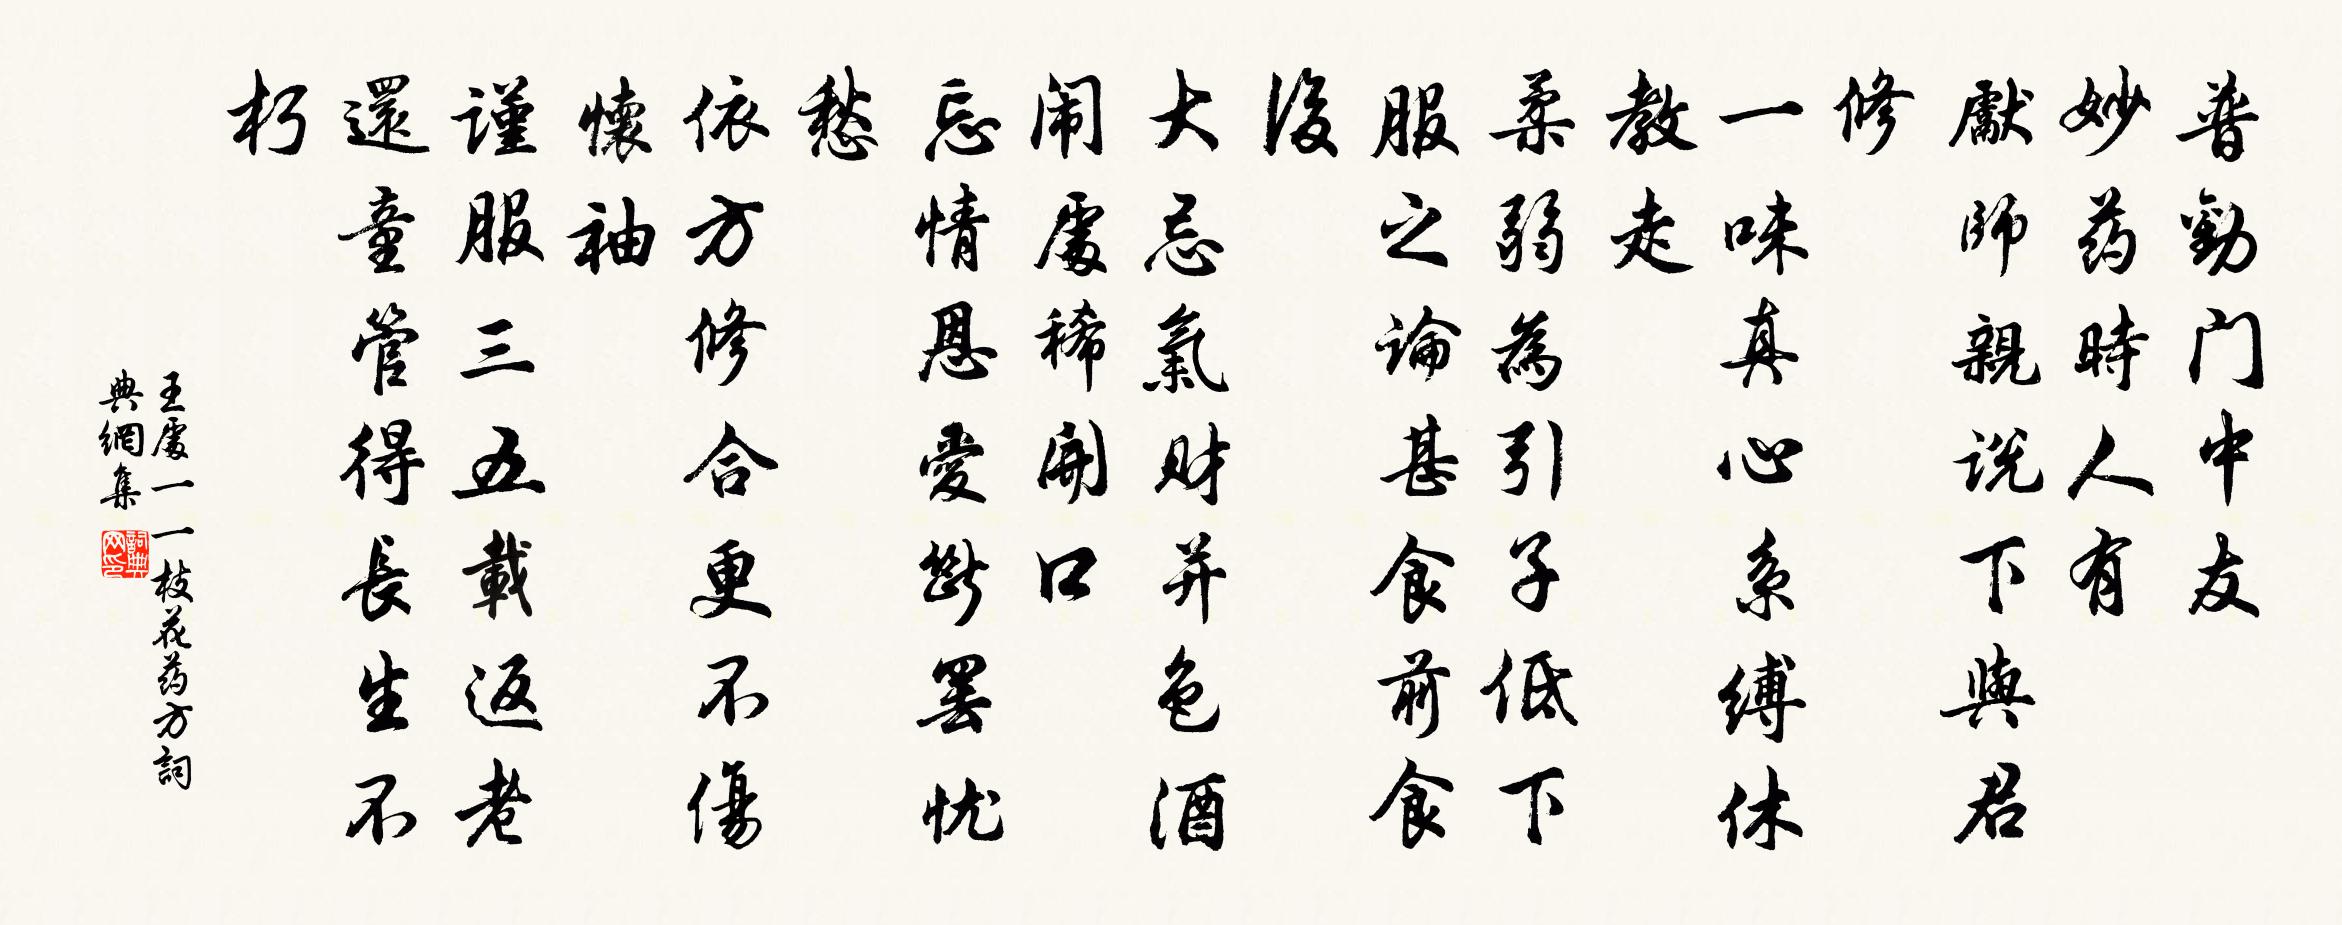 普勸门中友
妙药時人有
獻師親说下與君
修
一味真心系缚休
教走
柔弱為引子低下
服之論甚食前食
後
大忌氣财并色酒
闹處稀開口
忘情恩愛斷罢忧
愁
依方修合更不傷
懷袖
谨服三五載返老
還童管得長生不
朽
王處一一枝花药方詞
典網集
詞典网印